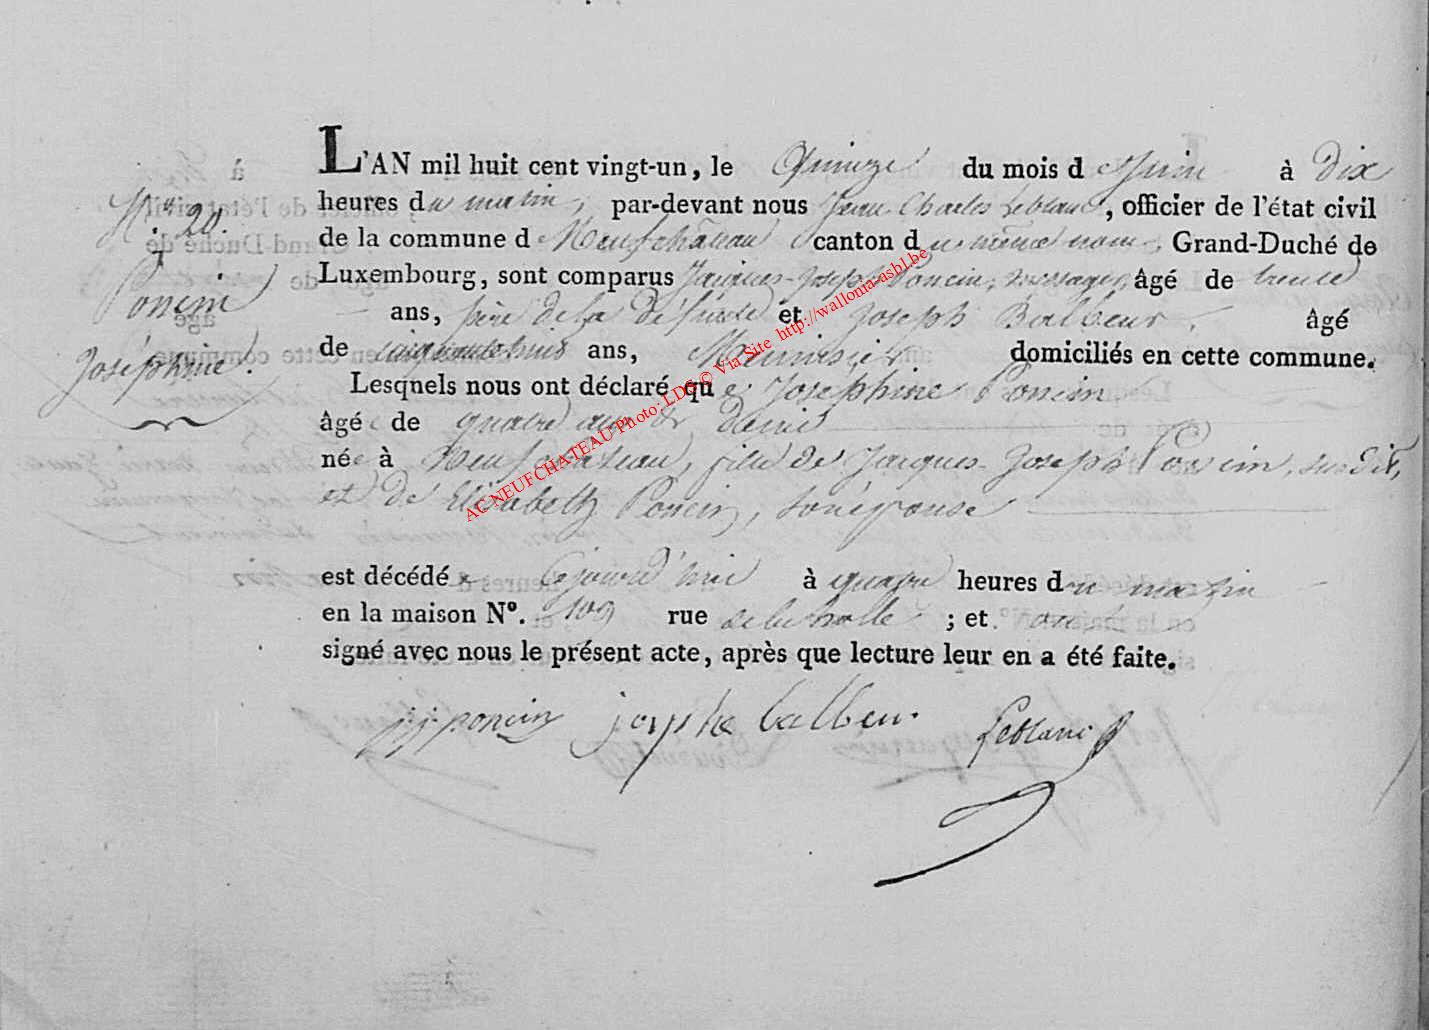 L'AN mil huit cent vingt-un, le Quinze du mois de Juin à Dix
N.° 20.
heures du matin, par-devant nous Jean Charles Leblanc, officier de l'état civil
de la commune de Neufchâteau canton du même nom, Grand-Duché de
Poncin
Luxembourg, sont comparus Jacques-Joseph Poncin, messager, âgé de trente
ans, père de la défunte et Joseph Balbeur, âgé
Joséphine.
de ans, Menuisier domiciliés en cette commune.
Lesqnels nous ont déclaré que Joséphine Poncin
âgée de quatre ans & demi
née à Neufchâteau, fille de Jacques-Joseph Poncin, susdit,
et de Elisabeth Poncin, son épouse
est décédée Cejourd'hui à quatre heures du matin
en la maison N°. 109 rue ; et ont
signé avec nous le présent acte, après que lecture leur en a été faite.
j j poncin joseph balbeur Leblanc
AC NEUFCHATEAU Photo: LDS © Via Site http://wallonia-asbl.be